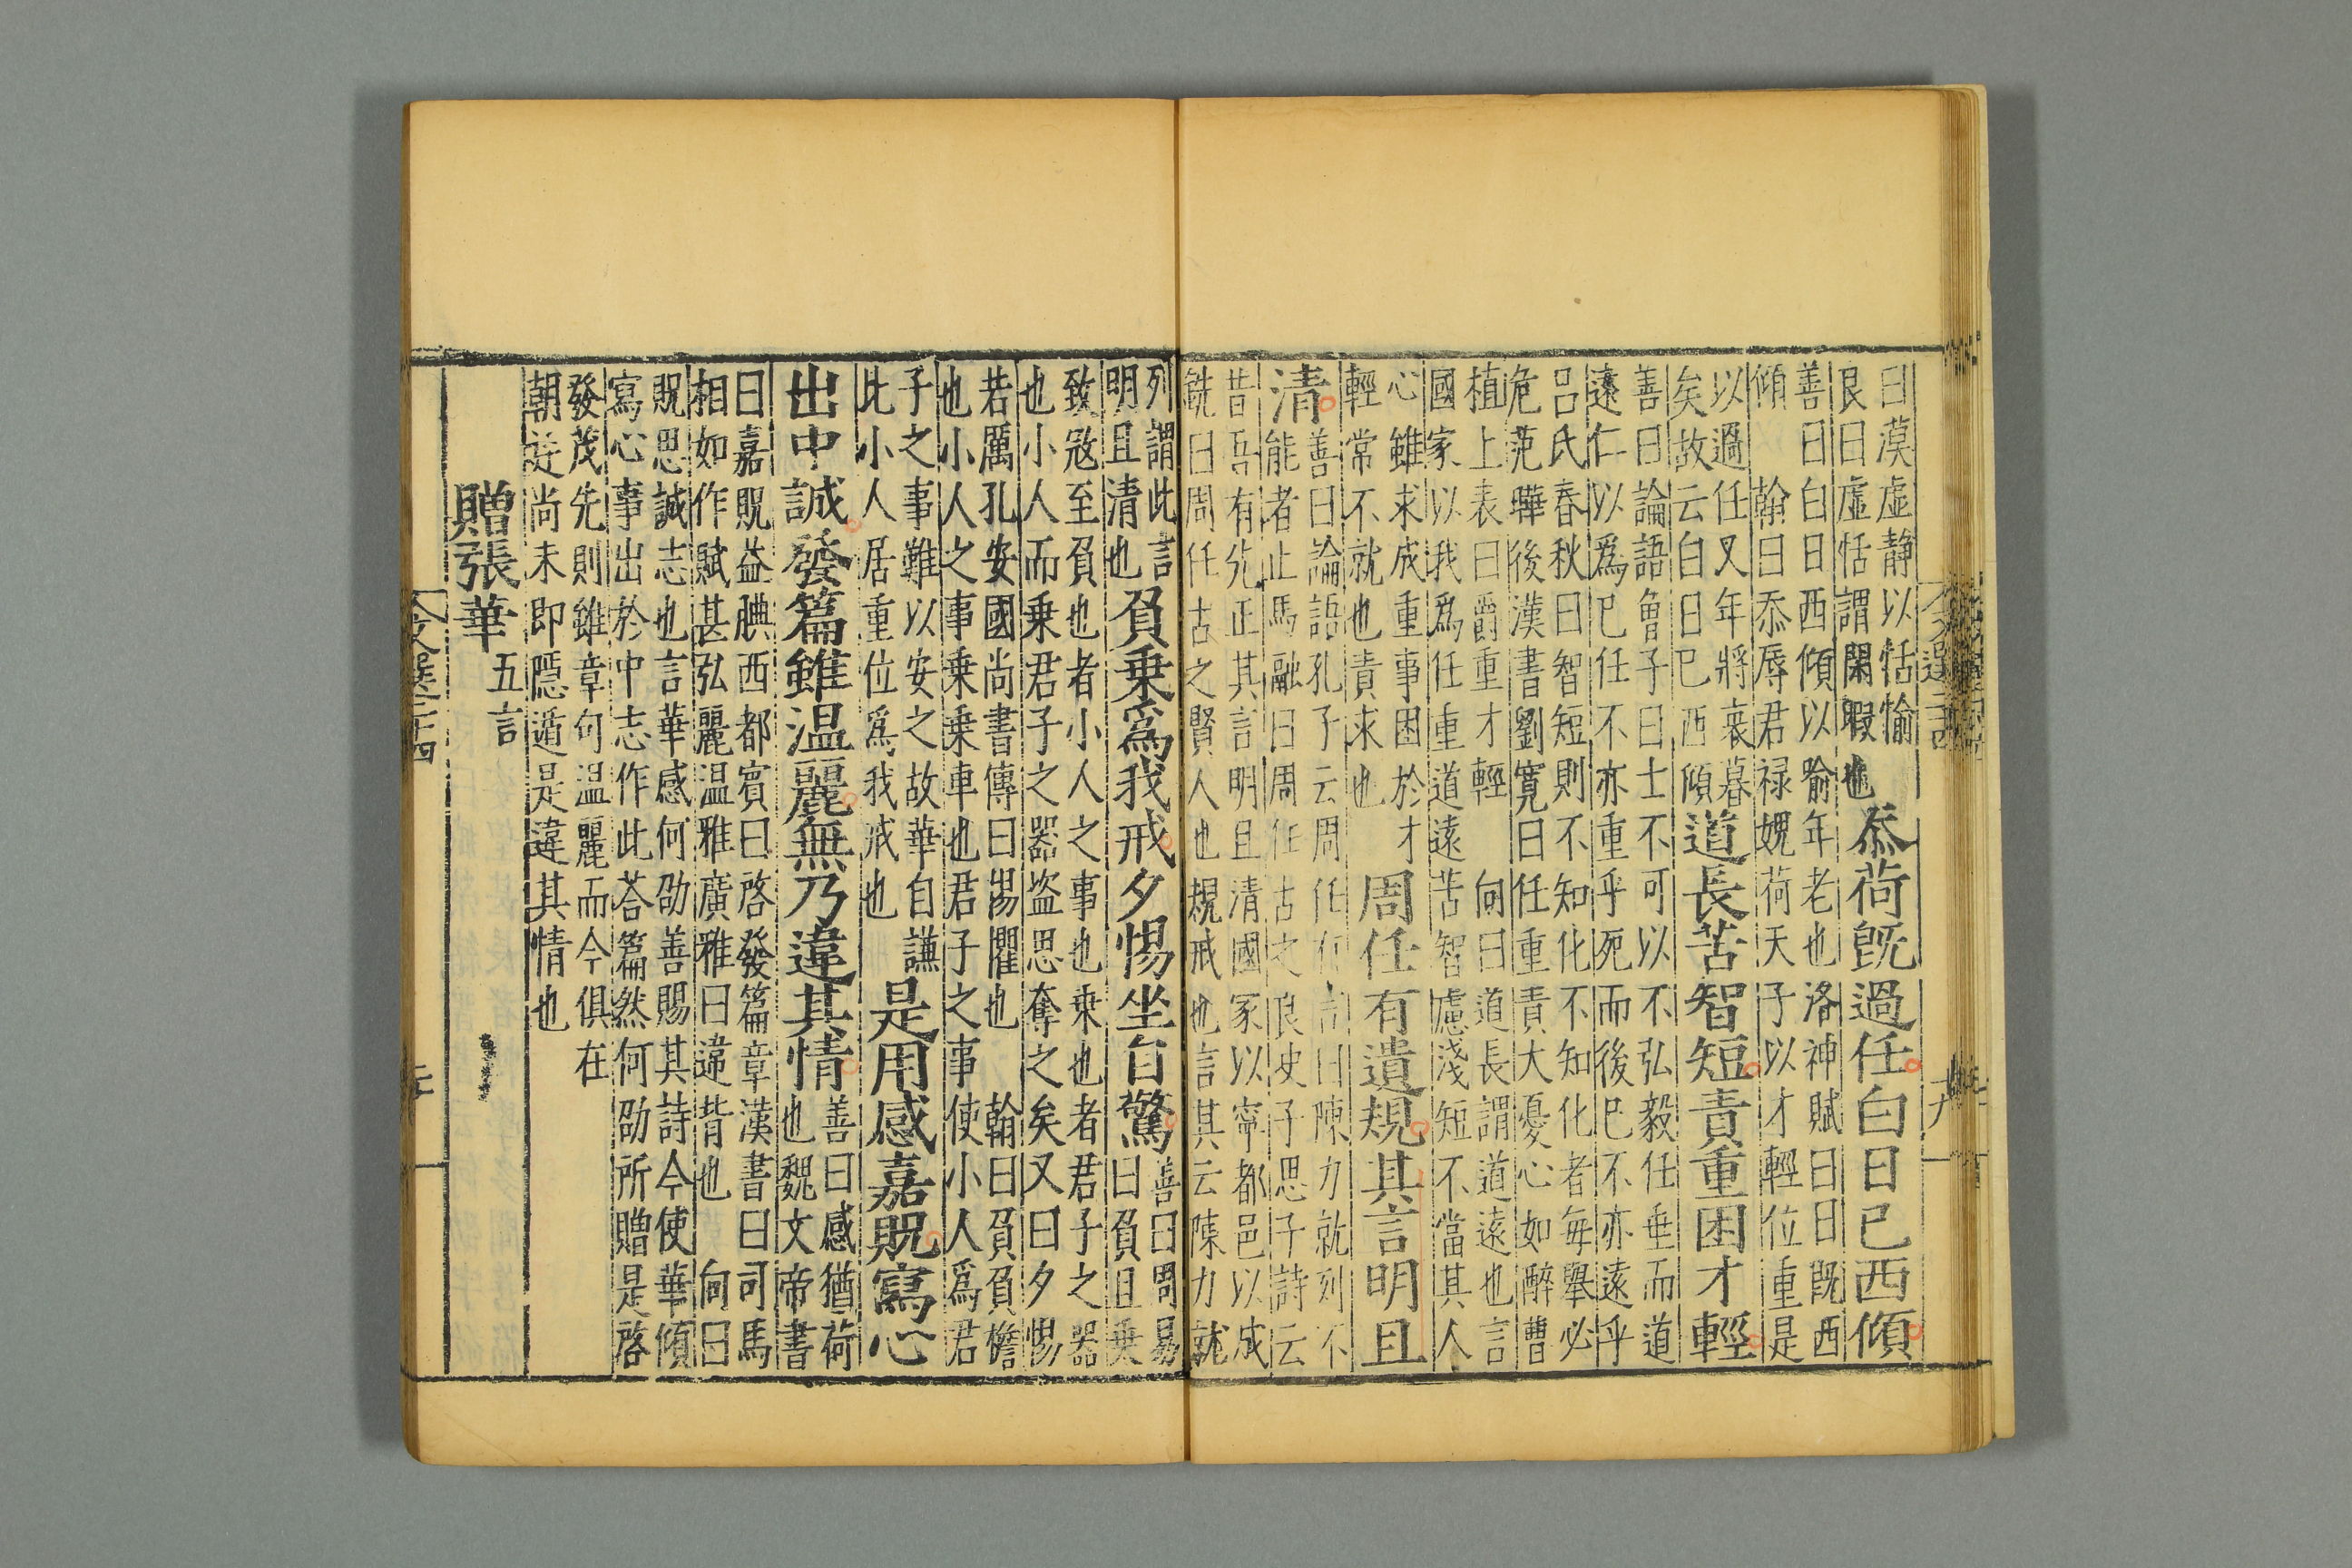 曰漠虛静以恬愉
良曰虛恬謂閑暇也
忝荷旣過任白日已西傾
善曰白日西傾以喻年老也洛神賦曰日旣西
傾 翰曰忝辱君禄媿荷天子以才輕位重是
以過任又年將衰暮
矣故云白日已西傾
道長苦智短責重困才輕
善曰論語曾子曰士不可以不弘毅任重而道
遠仁以爲已任不亦重乎死而後已不亦遠乎
吕氏春秋曰智短則不知化不知化者每舉必
危范曄後漢書劉寬曰任重責大憂心如醉曹
植上表曰爵重才輕 向曰道長謂道遠也言
國家以我爲任重道遠苦智慮淺短不當其人
心雖求成重事困於才
輕常不就也責求也
周任有遺規其言明且
清
善曰論語孔子云周任有言曰陳力就列不
能者止馬融曰周任古之良史子思子詩云
昔吾有先正其言明且清國家以寧都邑以成
銑曰周任古之賢人也規戒也言其云陳力就
列謂此言
明且清也
負乗爲我戒夕惕坐自驚
善曰周易
曰負且乗
致寇至負也者小人之事也乗也者君子之器
也小人而乗君子之器盗思奪之矣又曰夕惕
若厲孔安國尚書傳曰惕懼也 翰曰負負檐
也小人之事乗乗車也君子之事使小人爲君
子之事難以安之故華自謙
此小人居重位爲我戒也
是用感嘉貺寫心
出中誠發篇雖温麗無乃違其情
善曰感猶荷
也魏文帝書
曰嘉貺益腆西都賓曰啓發篇章漢書曰司馬
相如作賦甚弘麗温雅廣雅曰違背也 向曰
貺思誠志也言華感何劭善賜其詩今使華傾
寫心事出於中志作此荅篇然何劭所贈是啓
發茂先則雖章句温麗而今俱在
朝廷尚未即隱遁是違其情也
贈張華
五言